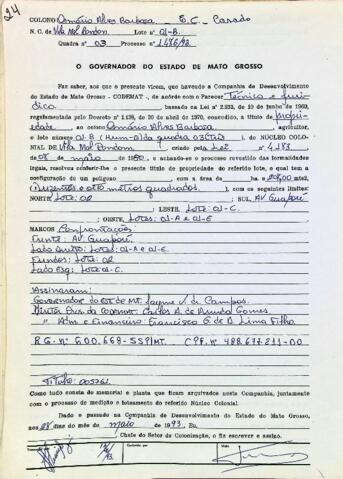 24
COLONO Osmário Alves Barbosa - E.C. Casado
N. C. de Vila Mal Rondon Lote 01-B.
Quadra nº 03 Processo nº 1476/92.
O GOVERNADOR DO ESTADO DE MATO GROSSO
Faz saber, aos que o presente virem, que havendo a Companhia de Desenvolvimento
do Estado de Mato Grosso - CODEMAT -, de acórdo com o Parecer Técnico e Jurí-
dico. baseada na Lei nº 2.933, de 19 de junho de 1969,
regulamentada pelo Decreto nº 1.138, de 20 de abril de 1970, concedido, a título de Propri-
edade, ao colono Osmário Alves Barbosa, agricultor,
e lote número 01-B (Hum B) da quadra 03 (três), do NÚCLEO COLO-
NIAL DE Vila Mal Rondom, criado pela Lei nº 4.183
de 08 de maio de 1980, e achando-se o processo revestido das formalidades
legais, resolveu conferir-lhe o presente título de propriedade do referido lote, o qual tem a
configuração de um polígono com a área de 208,00 mts2
(Duzentos e oito metros quadrados). com os seguintes limites:
NORTE, Lote: 02 SUL, AV Guaporé
LESTE, Lote: 01-C.
; OESTE, Lotes: 01-A e 01-E
MARCOS Confrontações:
Frente: AV. Guaporé
Lado Direito: Lotes: 01-A e 01-E.
Fundos: Lote: 02
Lado Esq: Lote: 01-C.
Assinaram:
Governador do Est de MT. Jayme V. de Campos.
Diretor Pres. da Codemat: Carlos A. de Arruda Gomes.
" Adm. e Financeiro: Francisco G. de D. Lima Filho
R.G. nº 600.668-SSP/MT. CPF. nº 488.677.211-00
Título: 005761
Como tudo consta do memorial e planta que ficam arquivados nesta Companhia, juntamente
com o processo de medição e loteamento do referido Núcleo Colonial.
Dado e passado na Companhia de Desenvolvimento do Estado de Mato Grosso,
aos 28 dias do mês de maio de 1993. Eu,
Chefe do Setor de Colonização, o fiz escrever e assino.